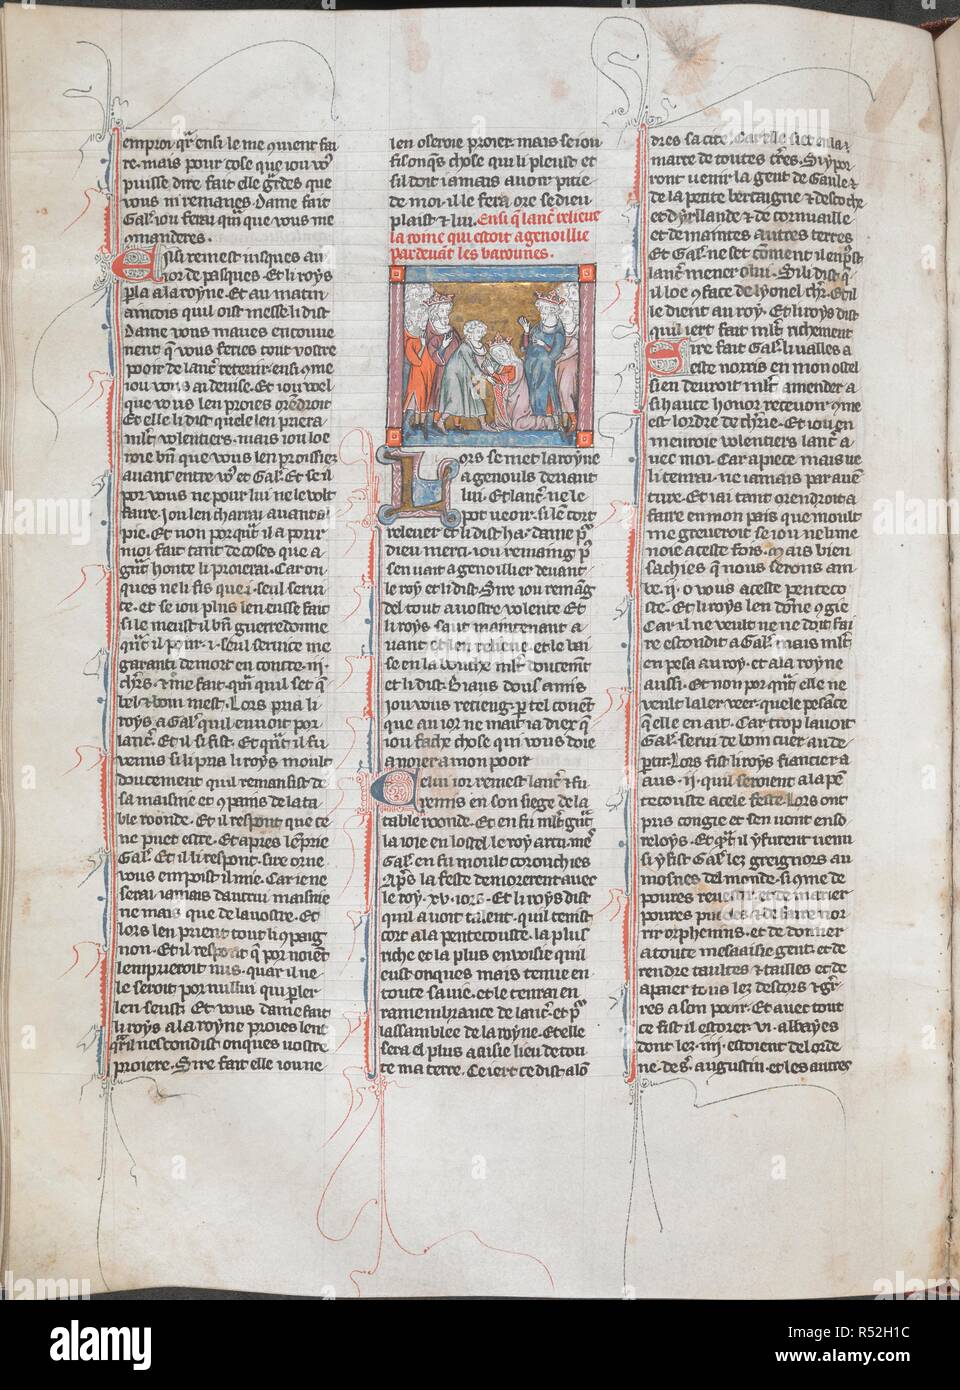 emploi q̄r ensi le me ꝯuient fai
re. mais pour cose que iou vo⁹
puisse dire fait elle gr̄des que
vous ni remaues. Dame fait
Gal. iou ferai qān que vous me
ꝯmanderes.
Ensi remest iusques au
ior de pasques. Et li roys
pla a la royne. Et au matin
ancois quil oist messe li dist
Dame vous maues en couue
nent q̄ vous feries tout vostre
pooir de lanc̄ retenir. ensi ꝯme
iou vous ai deuise. Et iou voel
que vous len proies orēdroit
Et elle li dist quele len priera
ml̄t volentiers. mais iou loe
roie bn̄ que vous len proissies
auant entre vo⁹ et Gal. Et se il
por vous ne pour lui ne le volt
faire. Iou len charrai auant al
pie. Et non porqūt il a pour
moi fait tant de coses que a
gr̄nt honte li proierai. Car on
ques ne li fis que .i. seul serui
ce. et se iou plus len eusse fait
si le meust il bn̄ guerredonne
garanti de mort en contre .iij.
bel et bom mest. Lors pria li
roys a Gal. quil enuoit por
lanc̄. Et il si fist. Et q̄nt il fu
venus si li pria li roys moult
doucement quil remansist de
sa maisnie et ꝯpains de la ta
ble roonde. Et il respont que ce
ne puet estre. Et apres len prie
Gal. Et il li respont. sire or ne
vous empoist il mie. Car ie ne
serai iamais dautrui maisnie
ne mais que de la uostre. Et
lors len prient tout li ꝯpaig
non. Et il respont q̄ por noient
lempreroit nus. quar il ne
le feroit por nullui qui p̄ler
len seust. Et vous dame fait
li roys a la royne proies lent
q̄r il nescondist onques uostre
proiere. Sire fait elle iou ne
len oseroie proier. mais se iou
fis onq̄s chose qui li pleust et
sil doit iamais auoir pitie
de moi. il le fera ore se dieu
plaist & lui. Ensi q̄ lanc̄ relieue
la roine qui estoit agenoillie
par deuāt les barouns.
Lors se met la royne
a genouls deuant
lui. Et lanc̄ ne le
pot veoir. si le cort
releuer et li dist ha. dame p̄
dieu merci. iou remaing p̄
sen uant agenoillier deuant
le roy et li dist. Sire iou remāg
del tout a uostre volente. Et
li roys saut maintenant a
uant et len relieue. et le bai
se en la bouche ml̄t doucem̄t
et li dist. Biaus dous amis
iou vous retieng. p̄ tel couēt
que au ior ne mait ia diex q̄
iou fache chose qui vous doie
anoier a mon pooir
Celui ior remest lanc̄ & fu
remis en son siege de la
table roonde. Et en fu ml̄t gr̄nt
la ioie en lostel le roy artu. mes
Gal. en fu moult corouchies
Ap̄s la feste demorerent auec
le roy .xv. iors. Et li roys dist
quil auoit talent. quil tenist
cort a la pentecouste. la plus
riche et la plus enuoisie quil
eust onques mais tenue en
toute sa uie. et le tenrai en
ramembrance de lanc̄. et p̄
lassamblee de la royne. Et elle
sera el plus aaisie lieu de tou
te ma terre. Ce iert ce dist al o
dies sa cite. Car elle siet en la
marce de toutes tr̄es. Si y por
ront uenir la gent de Gaule &
de la petite bertaigne & descoche
et dyrllande & de cornuaille
et de maintes autres terres
Et Gal. ne set cōment il enp̄st
lanc̄ mener o lui. Si li dist q̄
il loe ꝯ face de lyonel ch̄r. Et il
le dient au roy. Et li roys dist
quil iert fait ml̄t richement
Sire fait Gal. li valles a
este norris en mon ostel
si en deuroit ml̄t amender a
si haute honor recevoir ꝯme
est lordre de ch̄rie. Et iou en
menroie volentiers lanc̄ a
uec moi. Car a piece mais ne
li tenrai. ne iamais par auen
ture. Et iai tant orendroit a
faire en mon pais que moult
me greueroit se iou ne len me
noie a ceste fois. Mais bien
sachies q̄ nous serons am
be .ij. o vous a ceste penteco
ste. Et li roys len dōne ꝯgie
Car il ne veult ne ne doit fai
re escondit a Gal. mais ml̄t
en pesa au roy. et a la royne
aussi. Et non por q̄nt elle ne
veult laler veer. quele pesāce
q̄ elle en ait. Car trop lauoit
Gal. serui de bom cuer au de
p̄tir. Lors fist li roys fiancier a
aus .ij. quil seroient a la pē
tecouste a cele feste. Lors ont
pris congie et sen uont en so
reloys. Et q̄nt il y furent uenu
si y fist Gal. lez greignors au
mosnes del monde. si ꝯme de
poures reuestir. et de marier
poures pucieles & de faire nor
rir orphenins. et de donner
a toute mesaaisie gent. et de
rendre taultes & tailles et de
apaier tous lez descors & gr̄
res a son pooir. Et auec tout
ce fist il estorer .vi. abbayes
dont lez .iiij. estoient de lorde
ne de .s. augustin. et les autres
alamy
Image ID: R52H1C
www.alamy.com